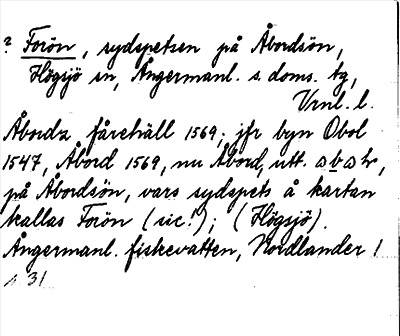 ? Forön, sydspetsen på Åbordsön,
Högsjö sn, Ångermanl. s. doms. tg,
Vrnl. l.
Åbordz fårehäll 1569; jfr byn Obol
1547, Åbord 1569, nu Åbord, utt.
på Åbordsön, vars sydspets å kartan
kallas Forön (sic!); (Högsjö).
Ångermanl. fiskevatten, Nordlander 1
s 31